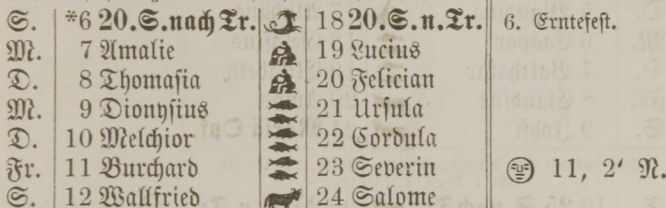 S. *6 20.S.nach Tr. 18 20.S.n.Tr. 6. Erntefest.
M. 7 Amalie 19 Lucius
D. 8 Thomasia 20 Felician
M. 9 Dionysius 21 Ursula
D. 10 Melchior 22 Cordula
Fr. 11 Burchard 23 Severin 11, 2' N.
S. 12 Wallfried 24 Salome